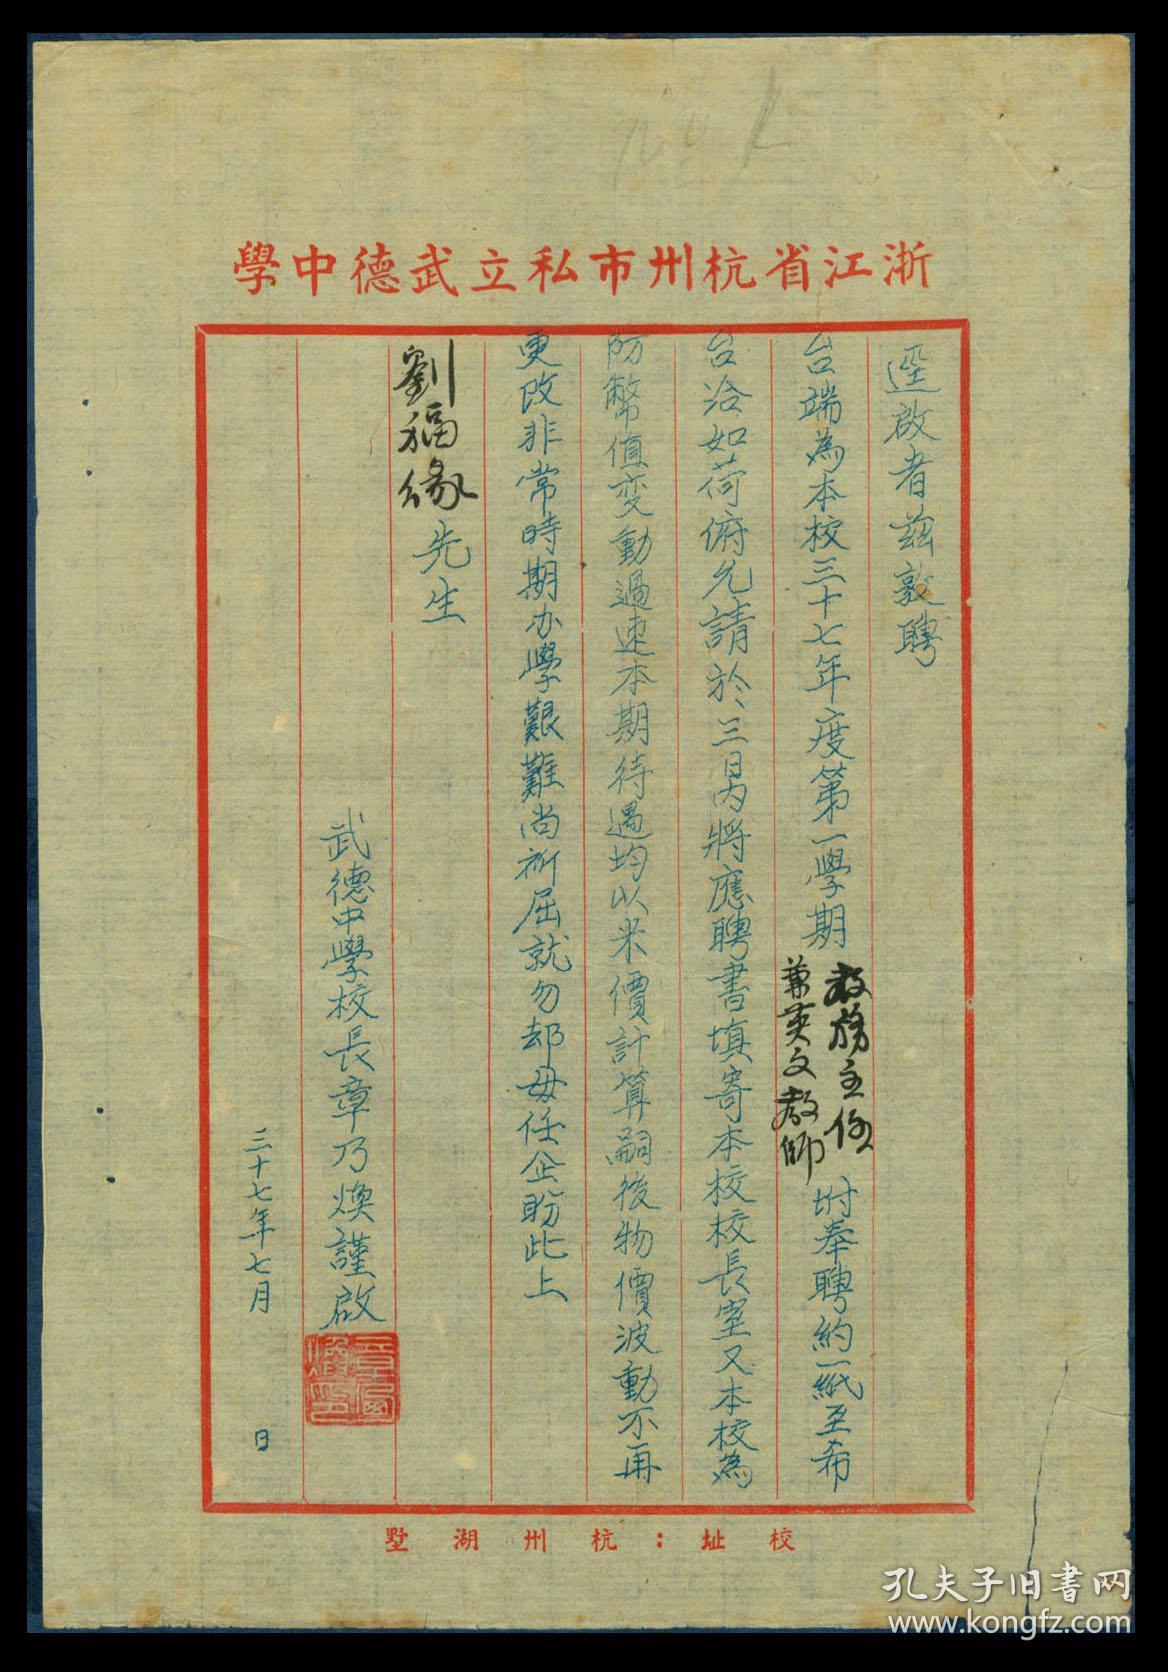 浙江省杭州市私立武德中學
逕啟者茲敦聘
台端為本校三十七年度第一學期
教務主任
兼英文教師
附奉聘約一紙至希
台洽如荷俯允請於三日內將應聘書填寄本校校長室又本校為
防幣值変動過速本期待遇均以米價計算嗣後物價波動不再
更改非常時期办學艱難尚祈屈就勿却毋任企盼此上
劉福缘先生
武德中學校長章乃煥謹啟
三十七年七月 日
校址：杭州湖墅
孔夫子旧書网
www.kongfz.com